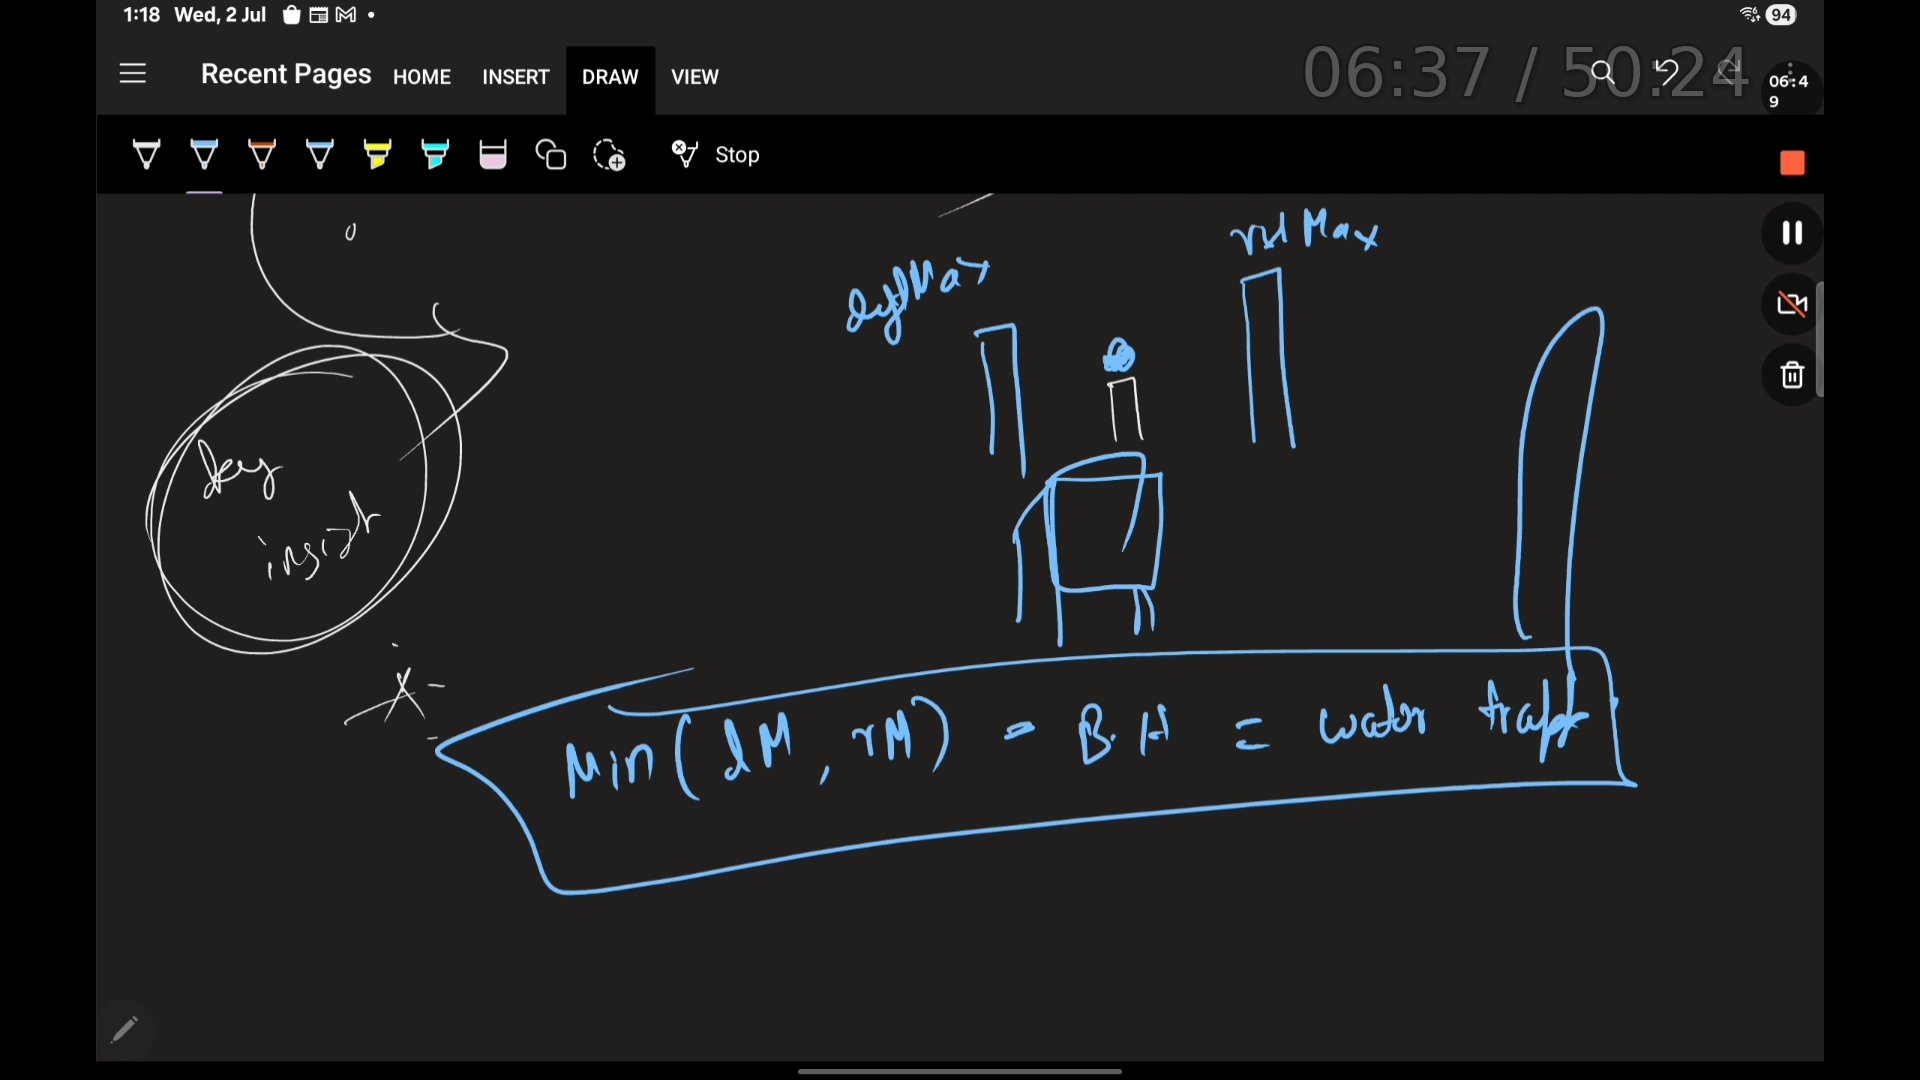 1:18 Wed, 2 Jul
94
Recent Pages HOME INSERT DRAW VIEW
06:37 / 50:24
06:4
9
Stop
0
key
insight
Min(lM, rM) - B.H = water trapp